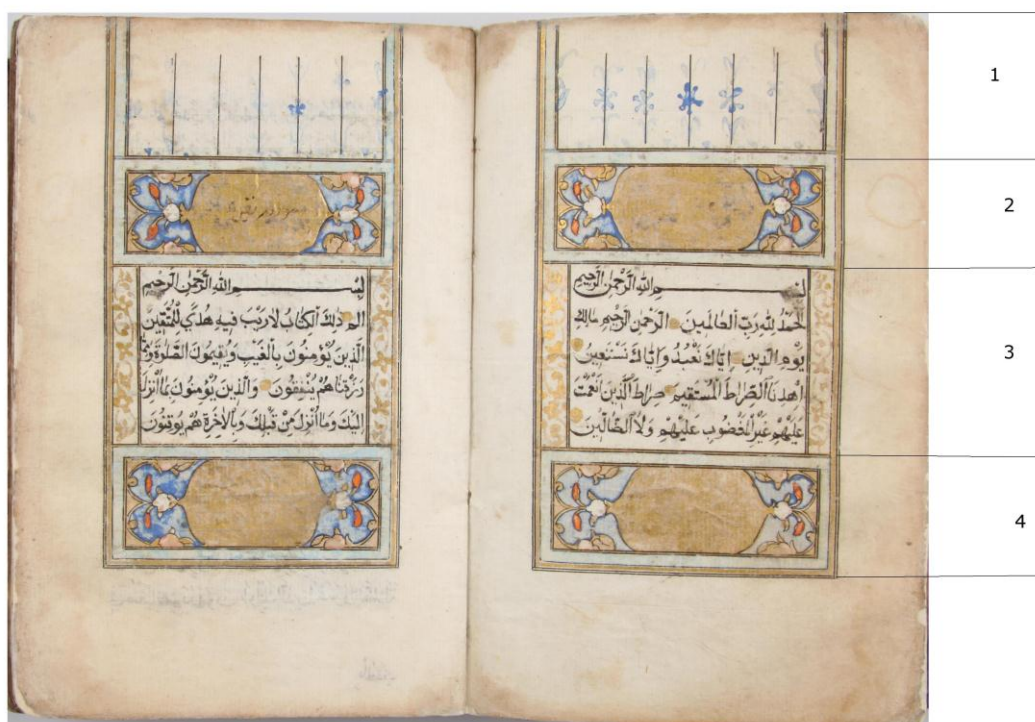 1
2
3
4
بِسْمِ اللهِ الرَّحْمٰنِ الرَّحِيمِ
اَلْحَمْدُ لِلّٰهِ رَبِّ الْعَالَمِينَ الرَّحْمٰنِ الرَّحِيمِ مَالِكِ
يَوْمِ الدِّينِ اِيَّاكَ نَعْبُدُ وَاِيَّاكَ نَسْتَعِينُ
اِهْدِنَا الصِّرَاطَ الْمُسْتَقِيمَ صِرَاطَ الَّذِينَ اَنْعَمْتَ
عَلَيْهِمْ غَيْرِ الْمَغْضُوبِ عَلَيْهِمْ وَلَا الضَّالِّينَ
بِسْمِ اللهِ الرَّحْمٰنِ الرَّحِيمِ
الم ذٰلِكَ الْكِتَابُ لَا رَيْبَ فِيهِ هُدًى لِلْمُتَّقِينَ
الَّذِينَ يُؤْمِنُونَ بِالْغَيْبِ وَيُقِيمُونَ الصَّلٰوةَ وَمِمَّا
رَزَقْنَاهُمْ يُنْفِقُونَ وَالَّذِينَ يُؤْمِنُونَ بِمَا اُنْزِلَ
اِلَيْكَ وَمَا اُنْزِلَ مِنْ قَبْلِكَ وَبِالْاٰخِرَةِ هُمْ يُوقِنُونَ